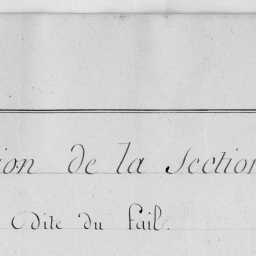 ion de la Section
Dite du Fail.